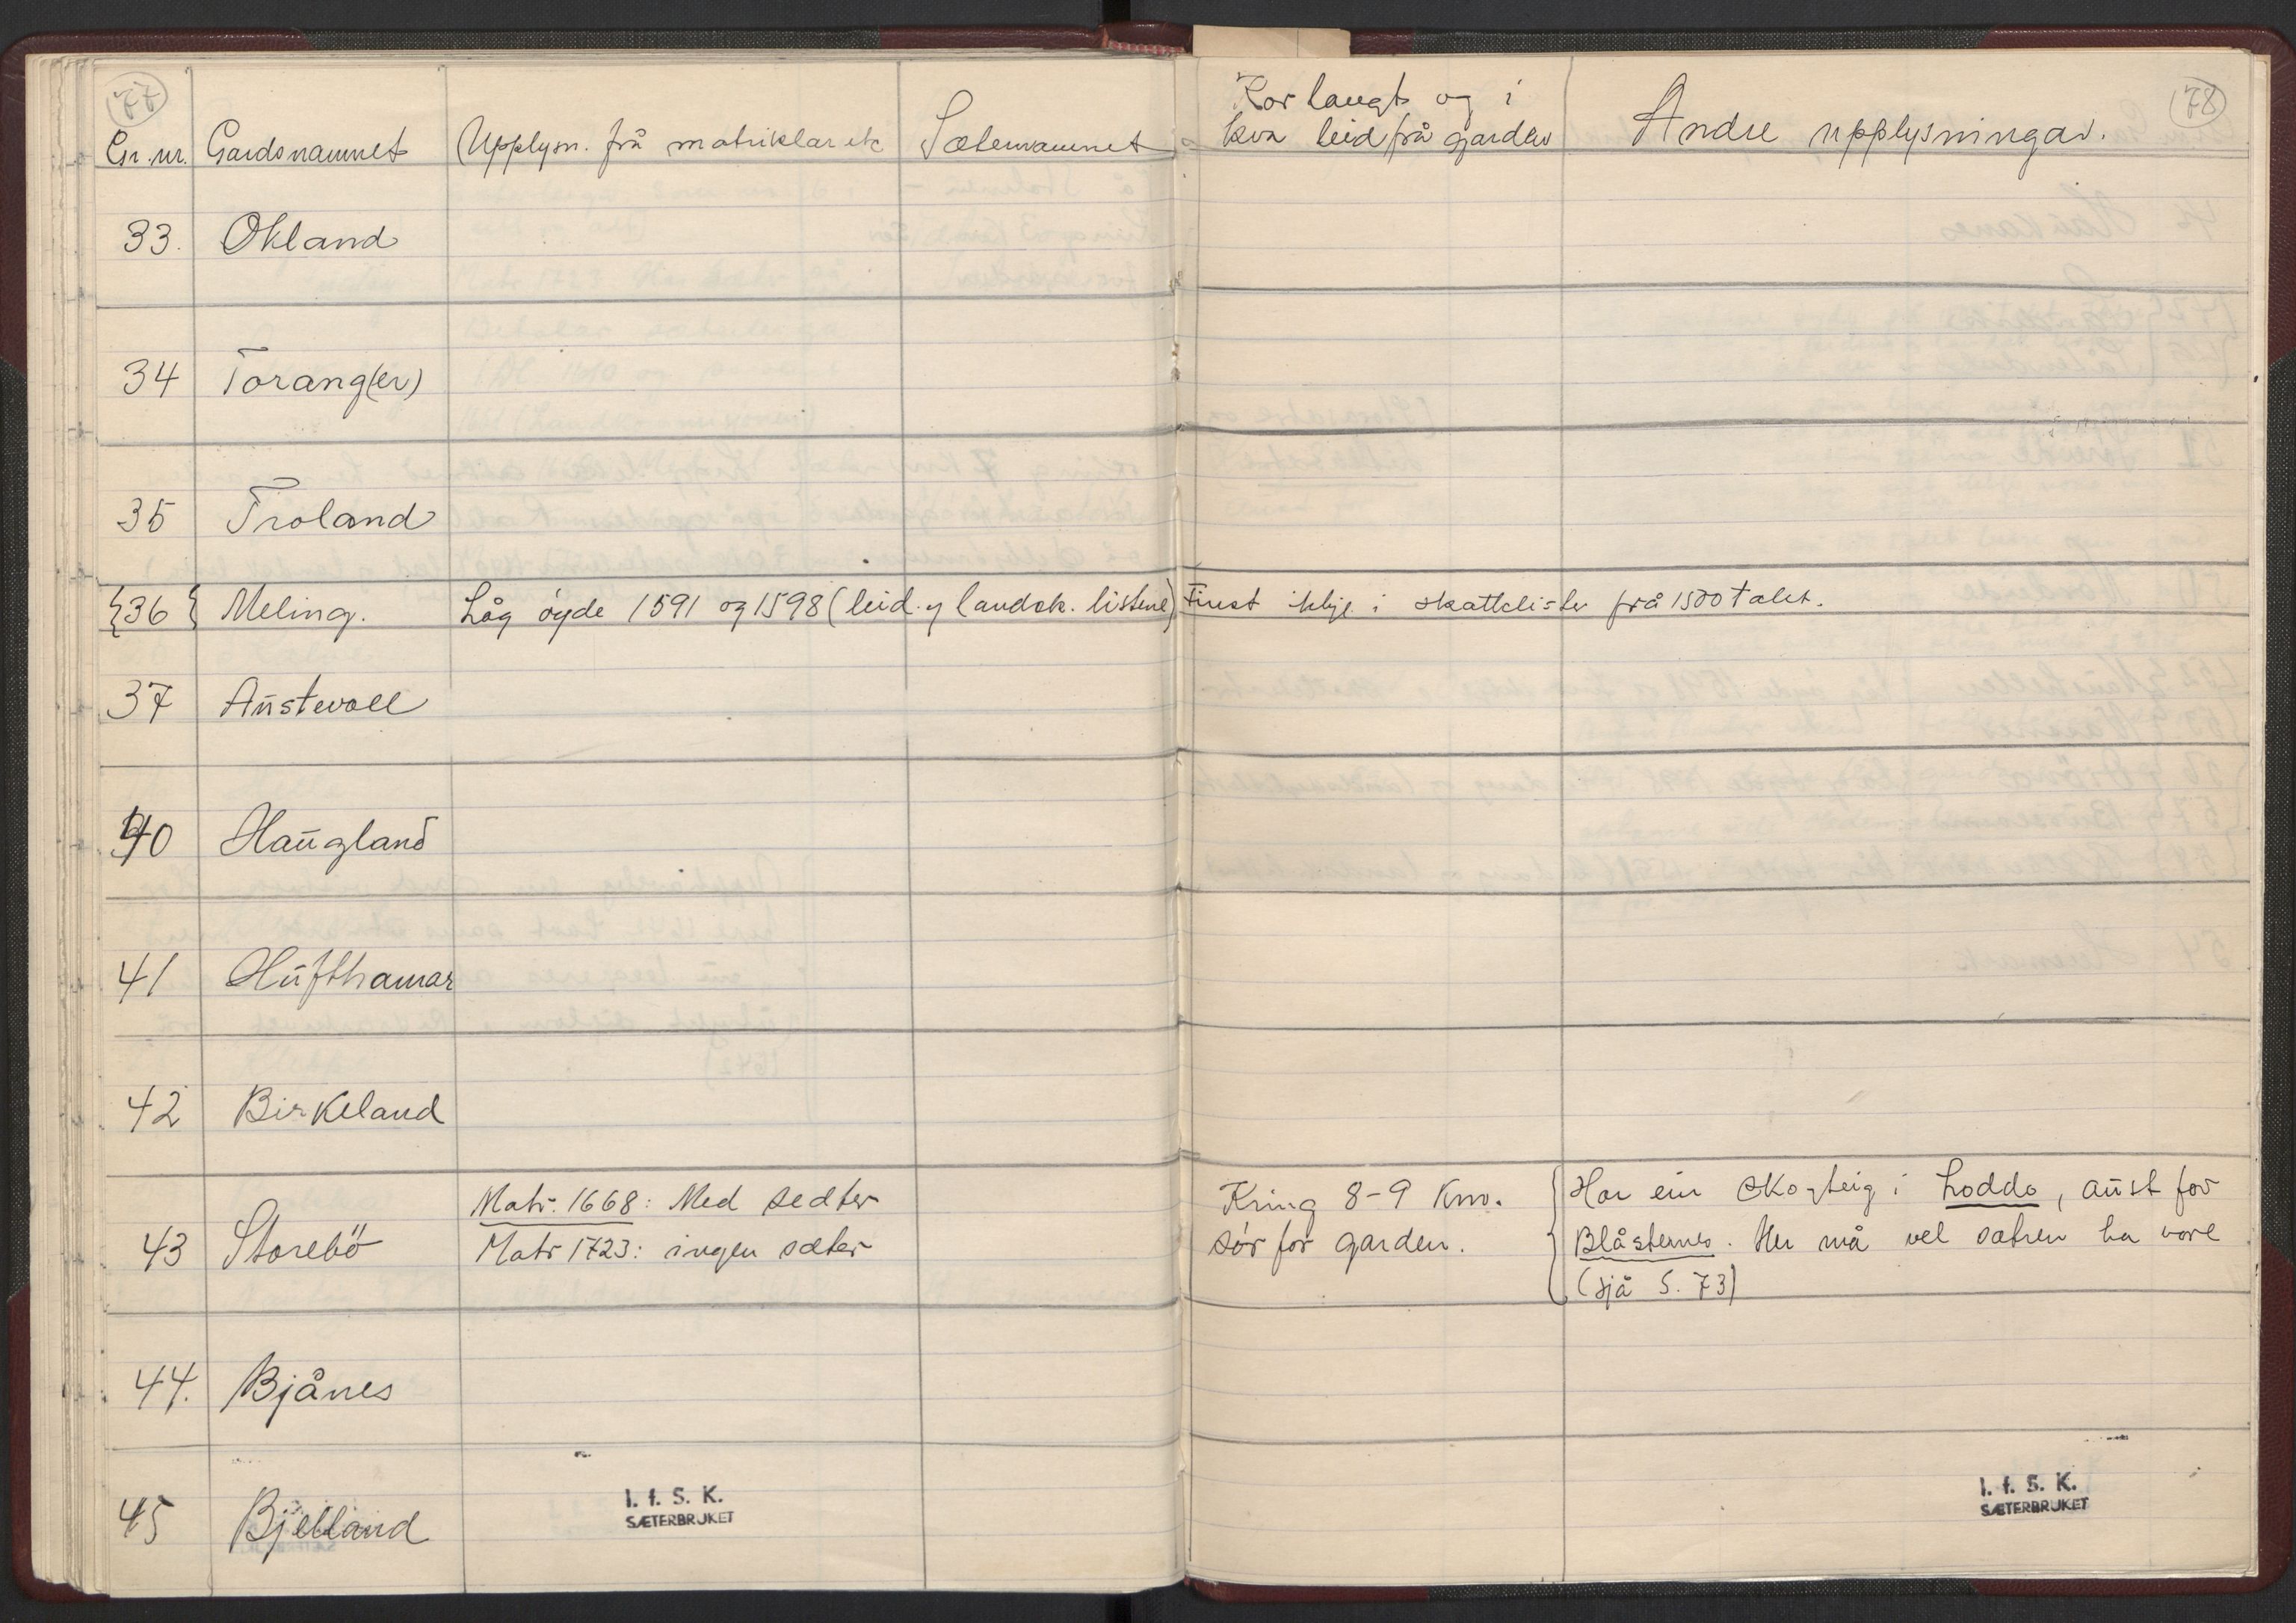 77
Gr. nr. Gardsnamnet Upplysn. frå matriklar etc Sæternamnet
33. Økland
34 Torang(er)
35 Troland
{36{ Meling. Låg øyde 1591 og 1598 (leid. og landsk. listene)
37 Austevoll
40 Haugland
41 Hufthamar
42 Birkeland
43 Storebö Matr. 1668: Med sedter
Matr 1723: ingen sæter
44. Bjånes
45 Bjelland
I. f. S. K.
SÆTERBRUKET
78
Kor langt og i
kva leid frå garden Andre upplysningar.
Finst ikkje i skattelister frå 1500 talet.
Kring 8-9 Km.
sør for garden.
Har ein skogteig i Loddo, aust for
Blåsternes. Her må vel sætren ha vore
(sjå S. 73)
I. f. S. K.
SÆTERBRUKET